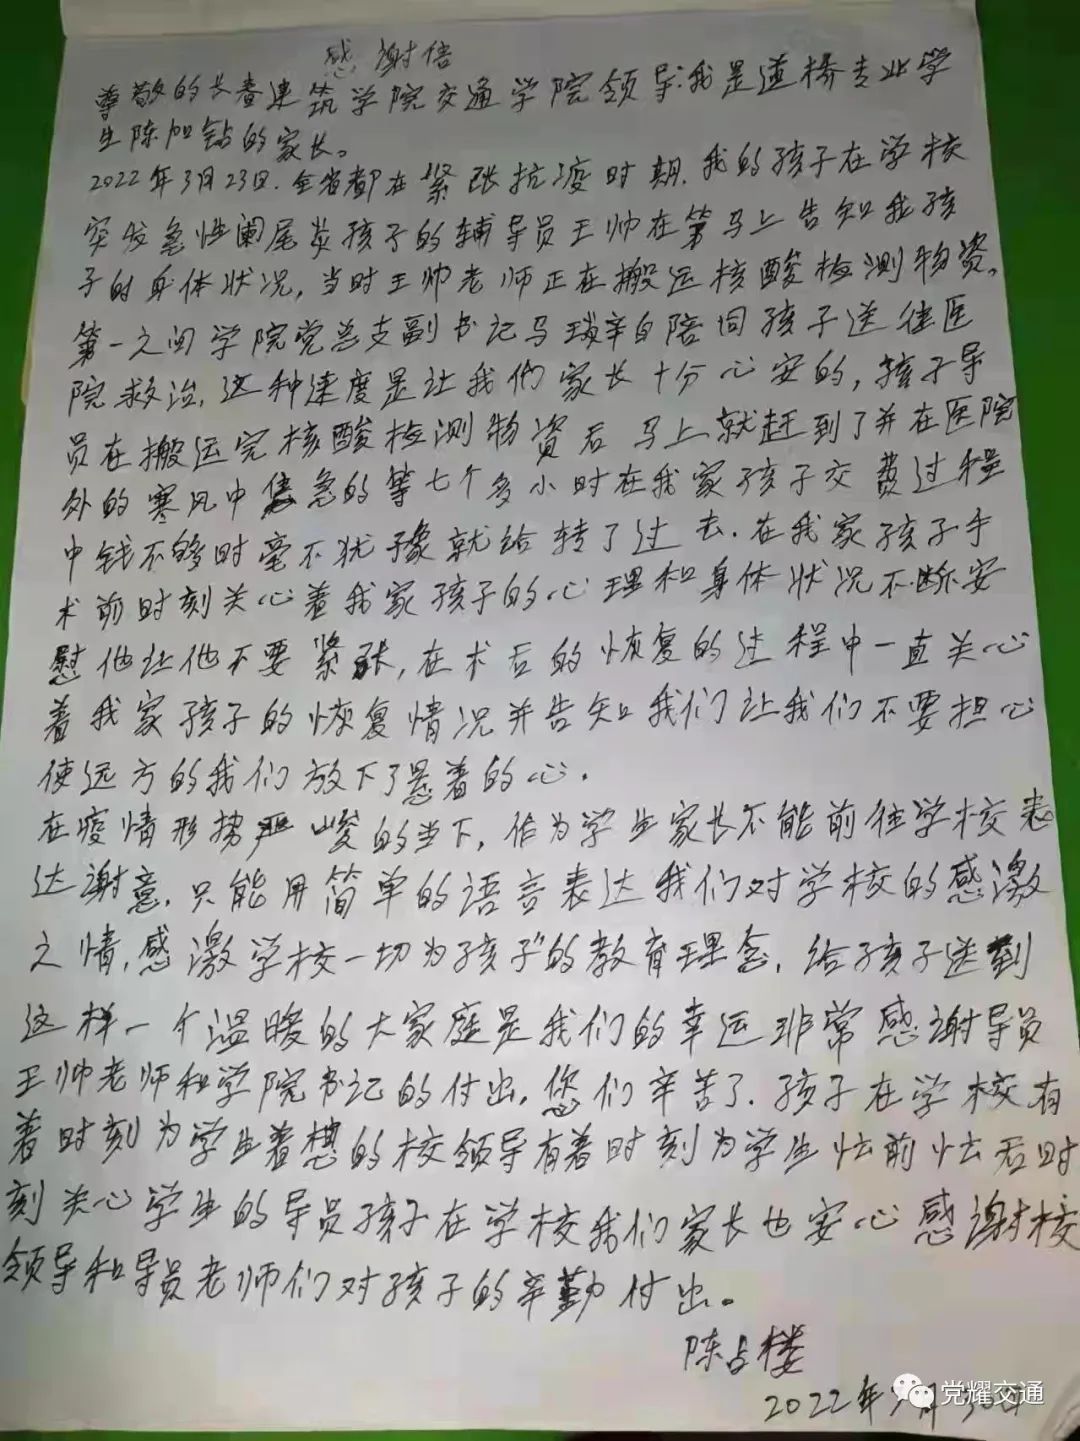 感谢信
尊敬的长春建筑学院交通学院领导:我是道桥专业学
生陈加钻的家长。
2022年3月23日.全省都在紧张抗疫时期.我的孩子在学校
突发急性阑尾炎孩子的辅导员王帅在第马上告知我孩
子的身体状况,当时王帅老师正在搬运核酸检测物资。
第一之间学院党总支副书记马琰辛自陪同孩子送往医
院救治,这种速度是让我们家长十分心安的,孩子导
员在搬运完核酸检测物资后马上就赶到了并在医院
外的寒风中焦急的等七个多小时在我家孩子交费过程
中钱不够时毫不犹豫就给转了过去.在我家孩子手
术前时刻关心着我家孩子的心理和身体状况不断安
慰他让他不要紧张,在术后的恢复的过程中一直关心
着我家孩子的恢复情况并告知我们让我们不要担心
使远方的我们放下了悬着的心.
在疫情形势严峻的当下,作为学生家长不能前往学校表
达谢意,只能用简单的语言表达我们对学校的感激
之情,感激学校一切为孩子"的教育理念,给孩子送到
这样一个温暖的大家庭是我们的幸运非常感谢导员
王帅老师和学院书记的付出,您们辛苦了.孩子在学校有
着时刻为学生着想的校领导有着时刻为学生忙前忙后时
刻关心学生的导员孩子在学校我们家长也安心感谢校
领导和导员老师们对孩子的辛勤付出。
陈占楼
2022年3月30日
党耀交通